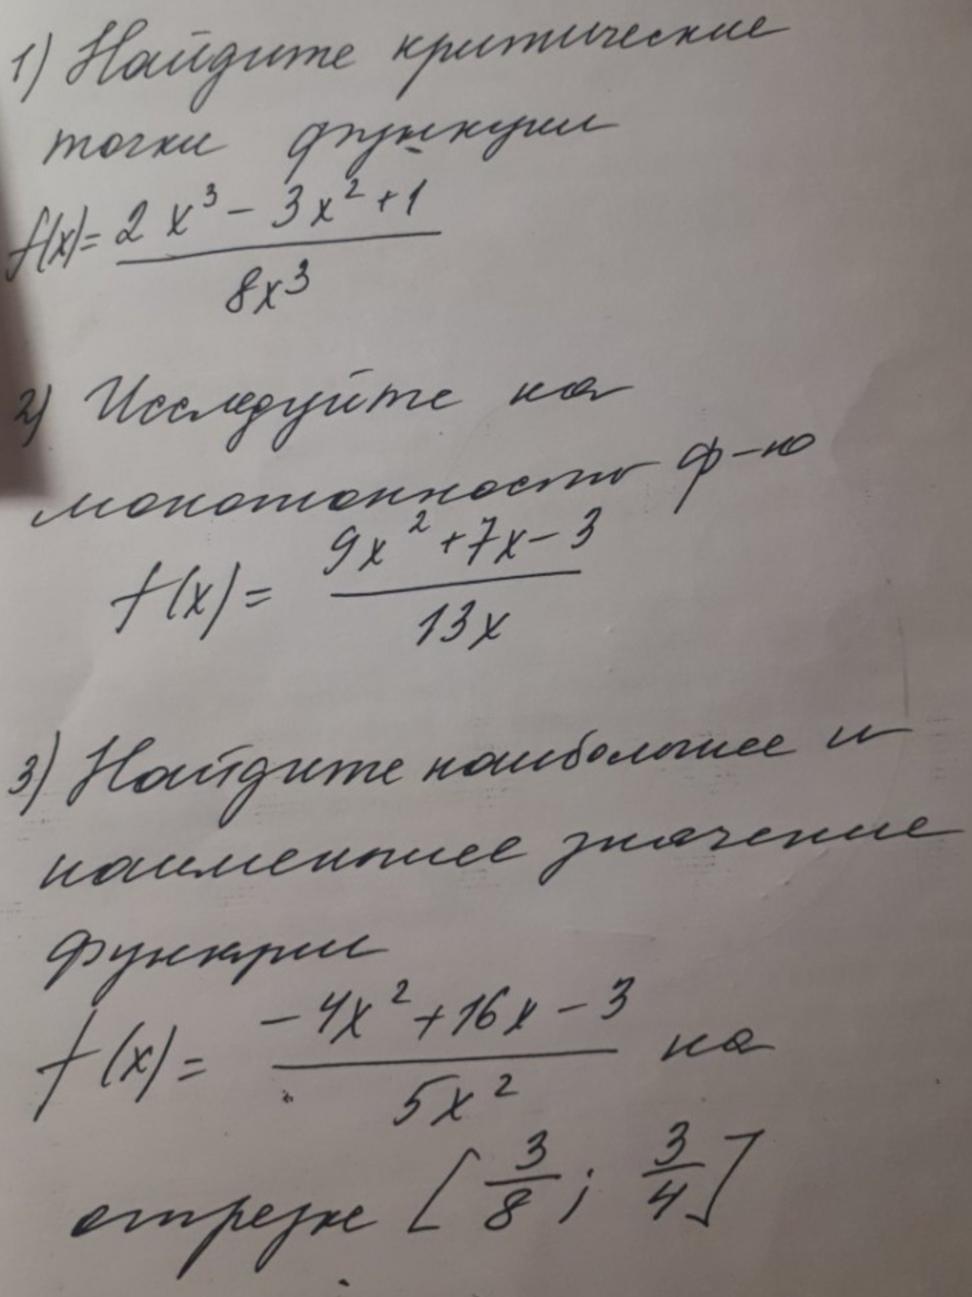 1) Найдите критические
точки функции
f(x) = \frac{2x^3 - 3x^2 + 1}{8x^3}
2) Исследуйте на
монотонность ф-ю
f(x) = \frac{9x^2 + 7x - 3}{13x}
3) Найдите наибольшее и
наименьшее значение
функции
f(x) = \frac{-4x^2 + 16x - 3}{5x^2} на
отрезке [\frac{3}{8}; \frac{3}{4}]